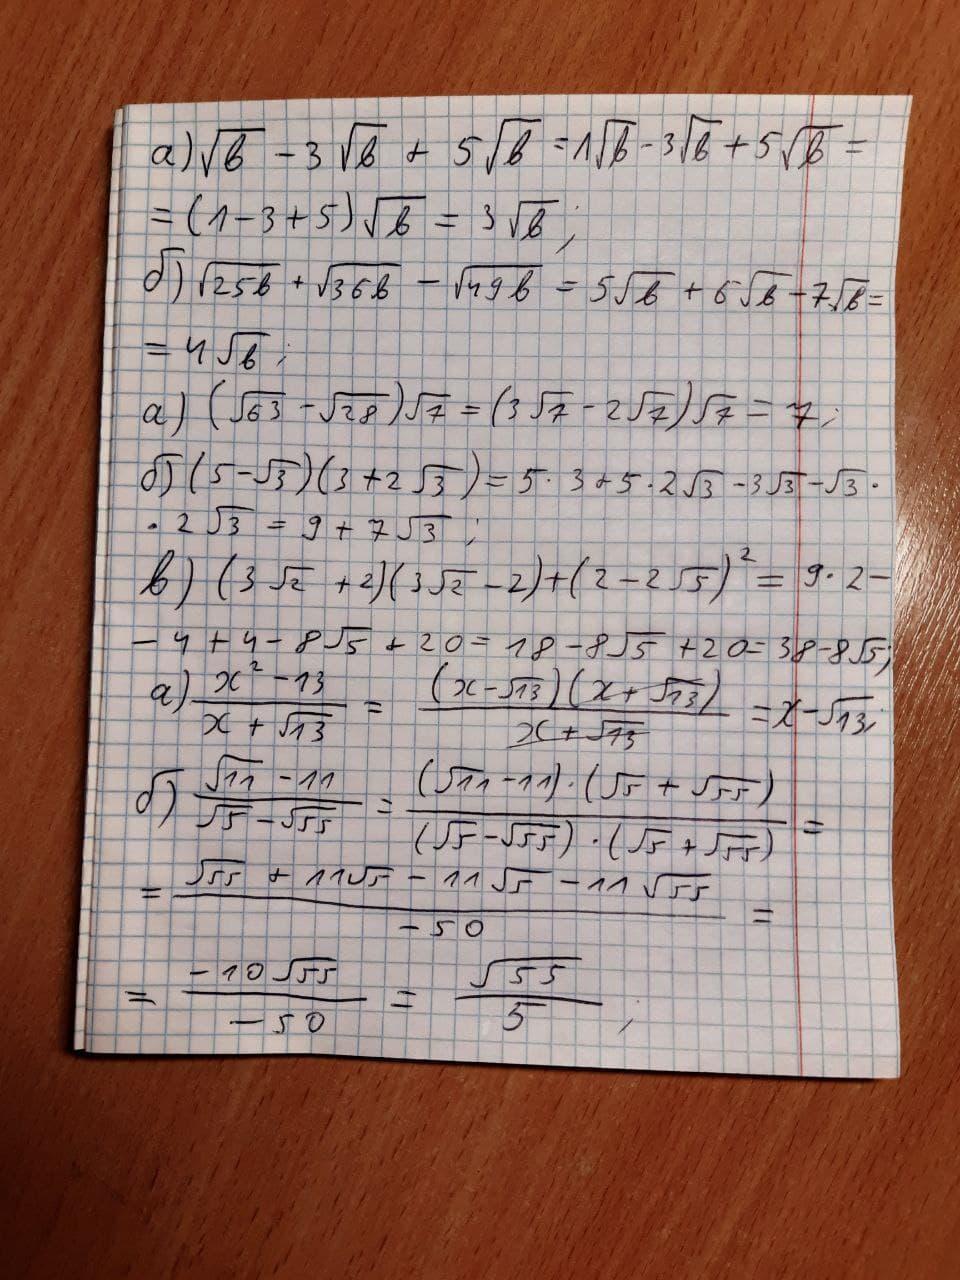 а) √b - 3√b + 5√b = 1√b - 3√b + 5√b =
= (1 - 3 + 5)√b = 3√b;
б) √25b + √36b - √49b = 5√b + 6√b - 7√b =
= 4√b;
а) (√63 - √28)√7 = (3√7 - 2√7)√7 = 7;
б) (5 - √3)(3 + 2√3) = 5·3 + 5·2√3 - 3√3 - √3·
·2√3 = 9 + 7√3;
в) (3√2 + 2)(3√2 - 2) + (2 - 2√5)² = 9·2 -
- 4 + 4 - 8√5 + 20 = 18 - 8√5 + 20 = 38 - 8√5;
а) (x² - 13)/(x + √13) = ((x - √13)(x + √13))/(x + √13) = x - √13;
б) (√11 - 11)/(√5 - √55) = ((√11 - 11)·(√5 + √55))/((√5 - √55)·(√5 + √55)) =
= (√55 + 11√5 - 11√5 - 11√55)/(-50) =
= (-10√55)/(-50) = √55/5;